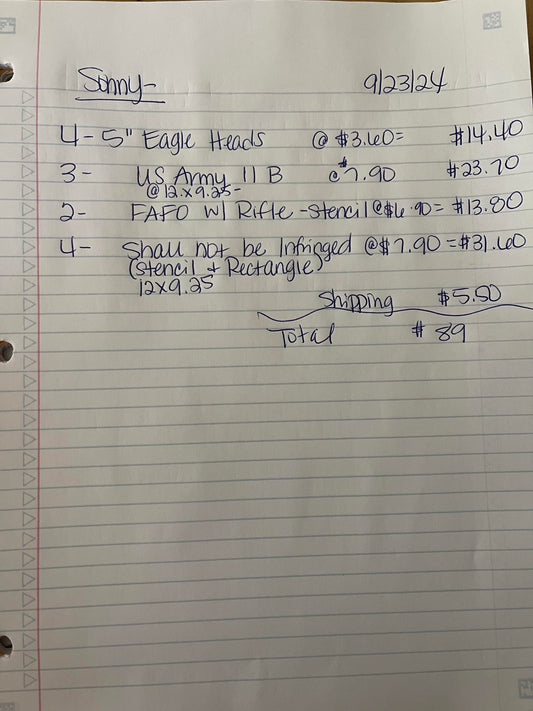 Sonny- 9/23/24
4- 5" Eagle Heads @ $3.60= $14.40
3- US Army 11 B @ $7.90 $23.70
@12.x9.25-
2- FAFO W/ Rifle -Stencil @$6.90= $13.80
4- Shall not be Infringed @$7.90 =$31.60
(Stencil + Rectangle)
12x9.25
Shipping $5.50
Total $ 89